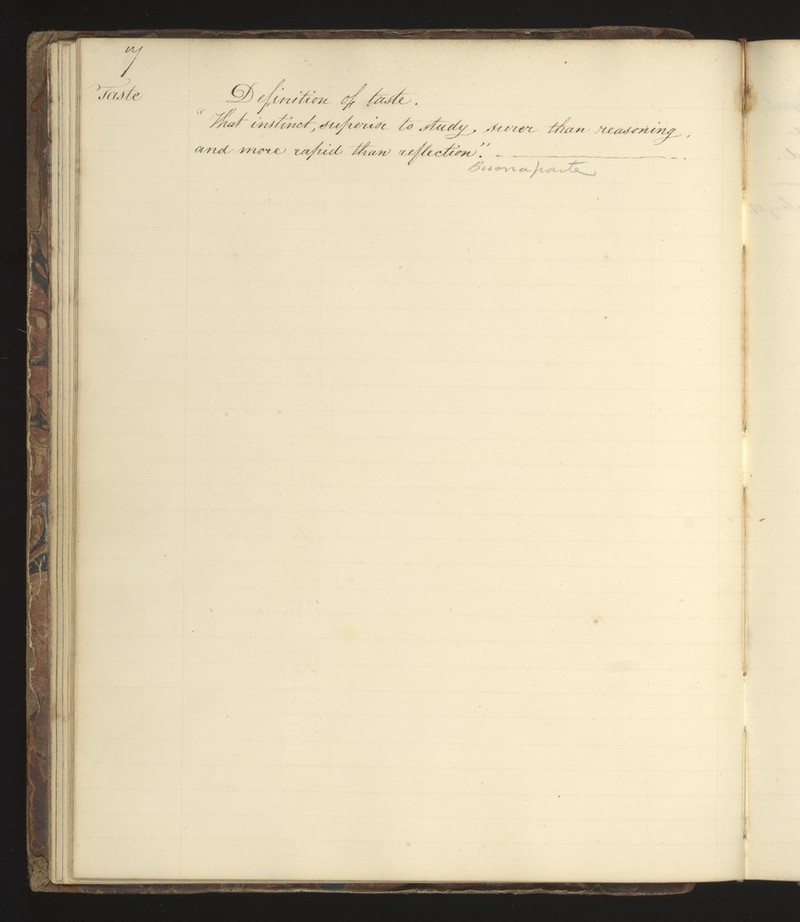 7
Taste
Definition of taste.
"That instinct, superior to study, surer than reasoning,
and more rapid than reflection".
Buonaparte